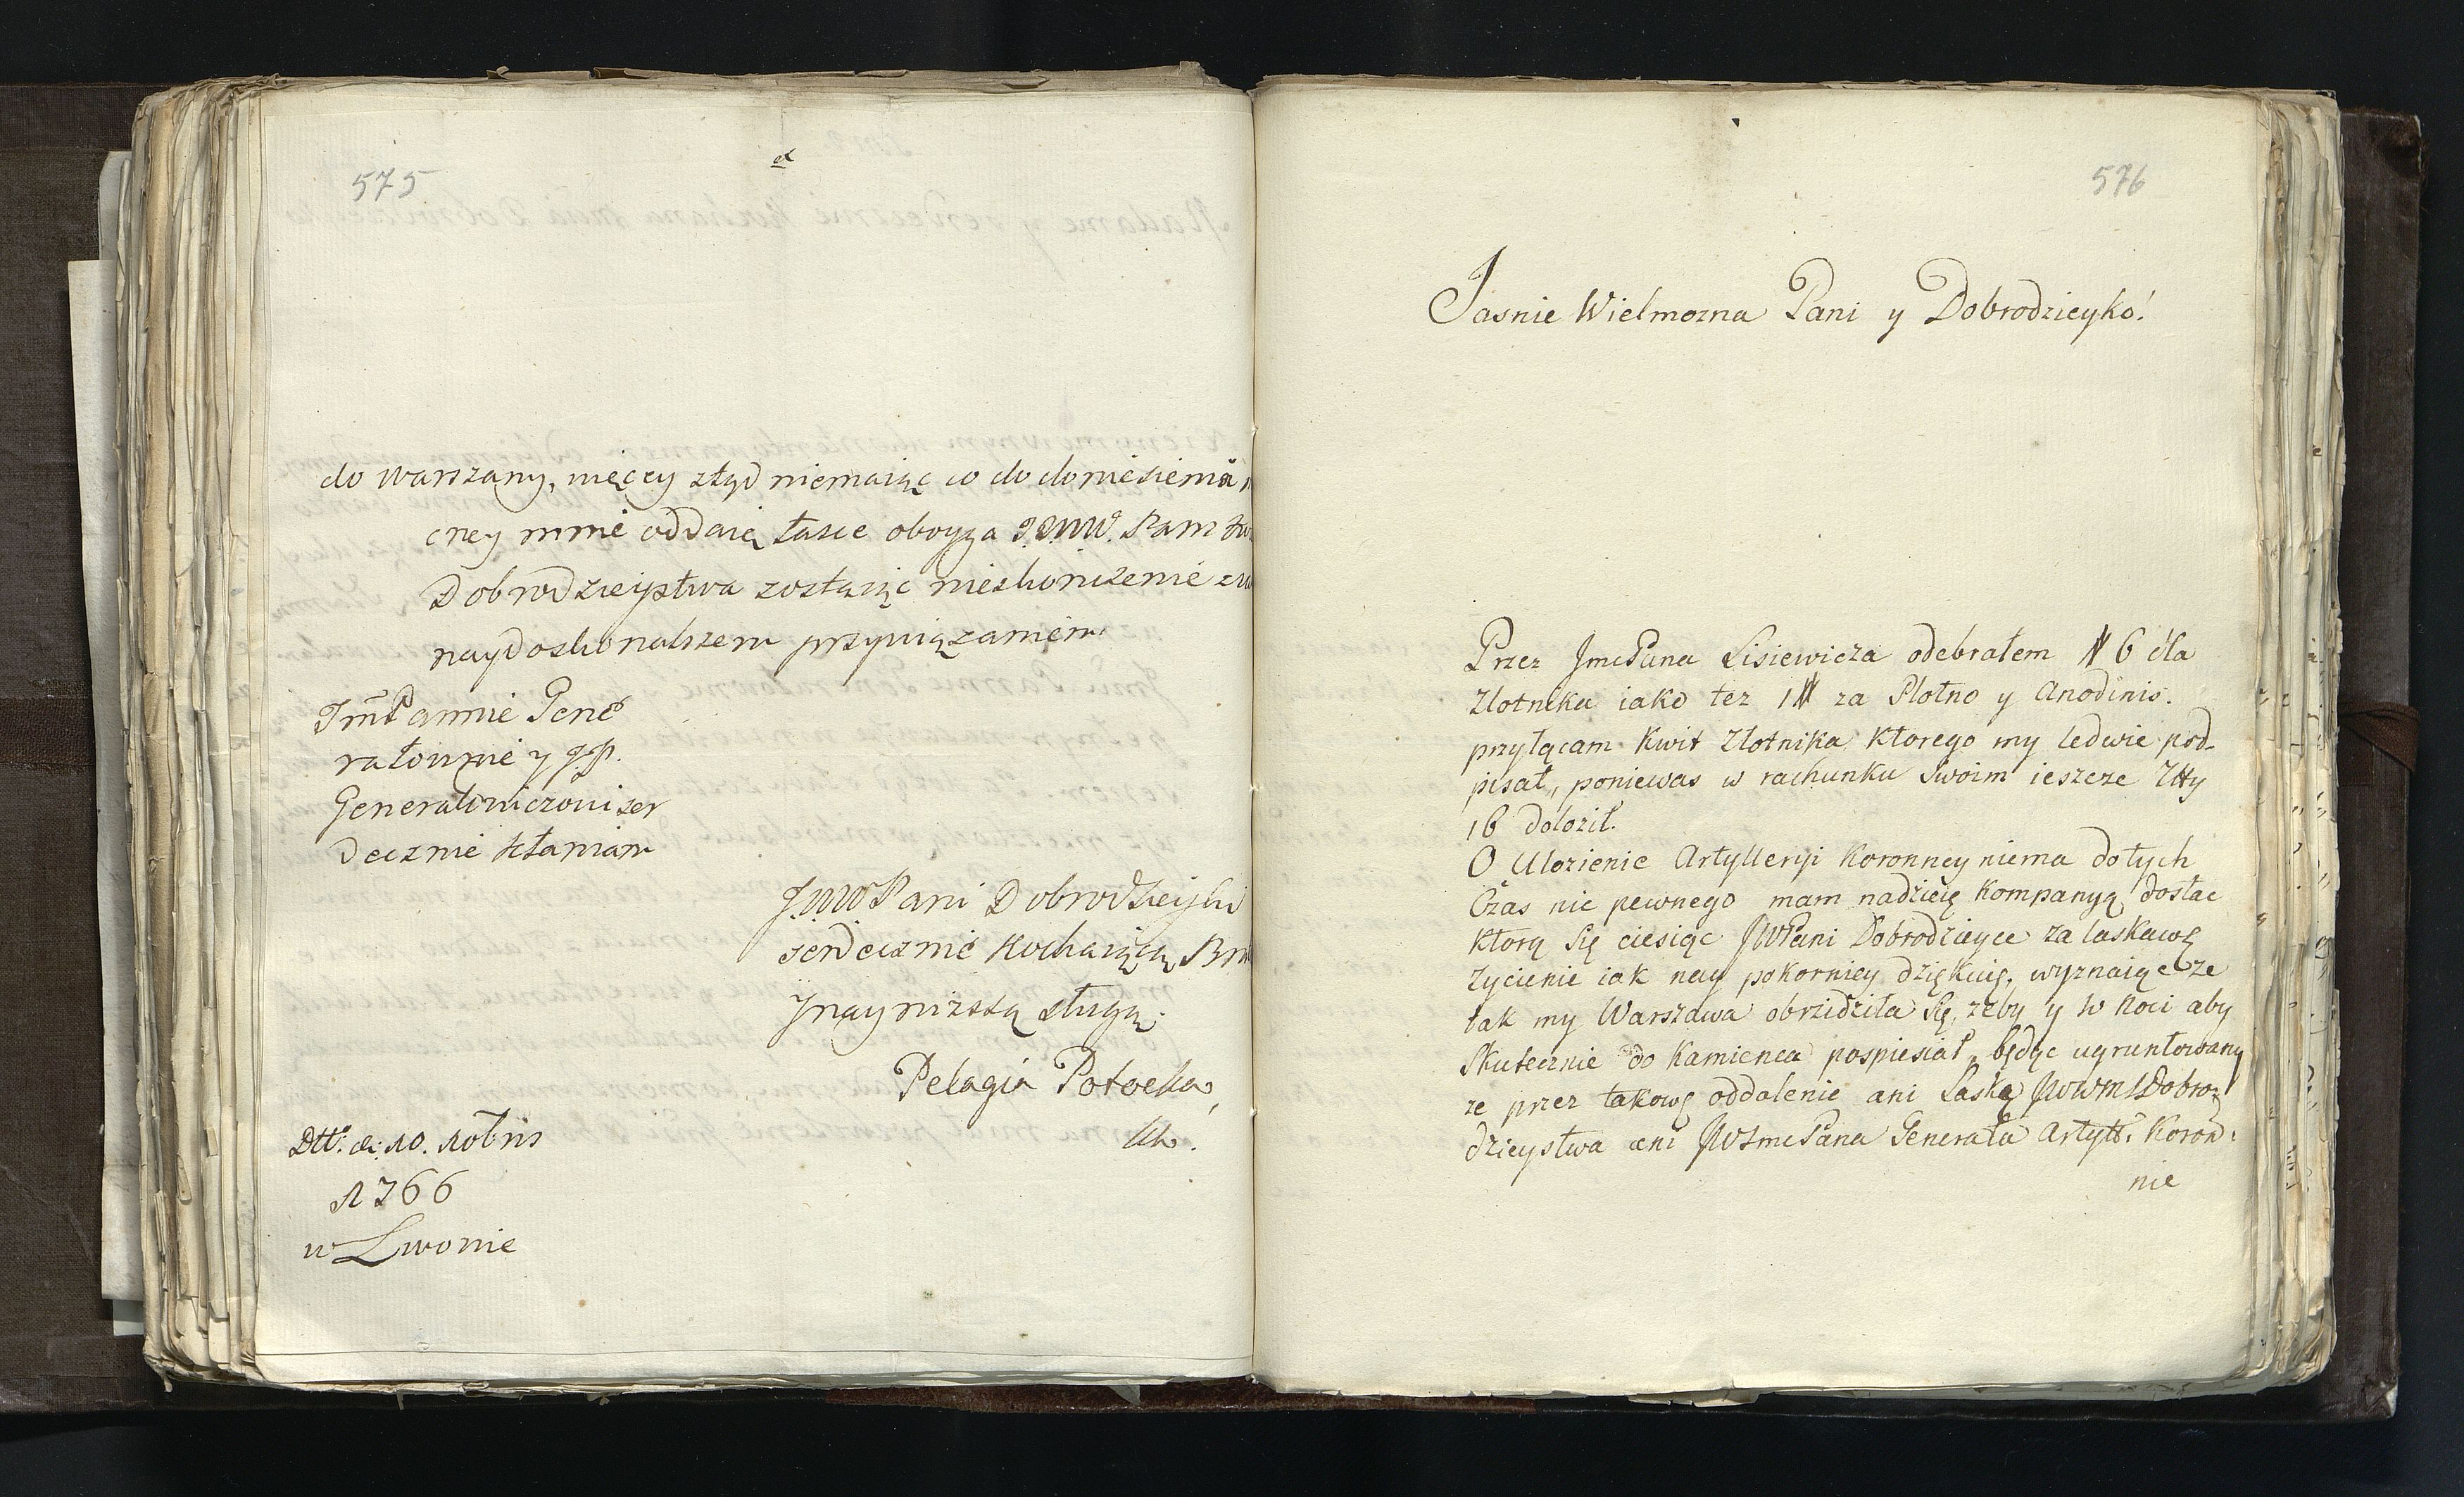 575
do Warszawy, więcey ztąd niemaiąc co do doniesienia
cney mnie oddaię łasce oboyga J.W.W. Państwa
Dobrodzieystwa zostaiąc nieskończenie z
naydoskonalszem przywiązaniem
JmPannie Gene
rałownie y J.P.
Generałowiczowi ser
decznie kłaniam
J.W.W Pani Dobrodzieyki
serdecznie kochaiącą
y nayniższą sługą.
Pelagia Potocka
Dtt: d: 10. Xobris
1766
w Lwowie
576
Jasnie Wielmozna Pani y Dobrodzieyko!
Przez JmcPana Lisiewicza odebrałem # 6 dla
Zlotnika iako tez 1 # za Plotno y Anodinis.
przyłącam Kwit Zlotnika, Ktorego my ledwie pod-
pisał, poniewas w rachunku Swoim ieszcze Złły
16 dolozil.
O Ulozienie Artylleryi Koronney niema do tych
Czas nic pewnego mam nadzieię Kompanyą dostac
Ktorą Się ciesiąc JWPani Dobrodzieyce za laskawę
Zycienie iak nay pokorniey dziękuię, wyznaiąc ze
tak my Warszawa obrzidziła Się, zeby y w Noci aby
Skutecznie do Kamienca pospiesiał, będąc ugruntowany
ze przez takowę oddalenie ani Laskę JWWMPDobro-
dzieystwa ani JWJmcPana Generała Artyll: Koron:
nie